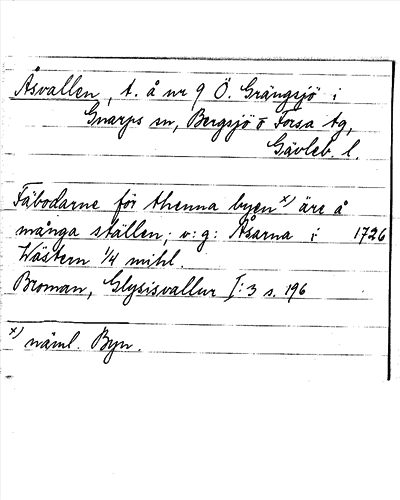 Åsvallen, t. å nr 9 Ö. Grängsjö i
Gnarps sn, Bergsjö o Forsa tg,
Gävleb. l.
Fäbodarne för thenna byen x) äre å
många ställen; v: g: Åsarna i 1726
Wästern 1/4 mihl.
Broman, Glysisvallur I:3 s. 196
x) näml. Byn.